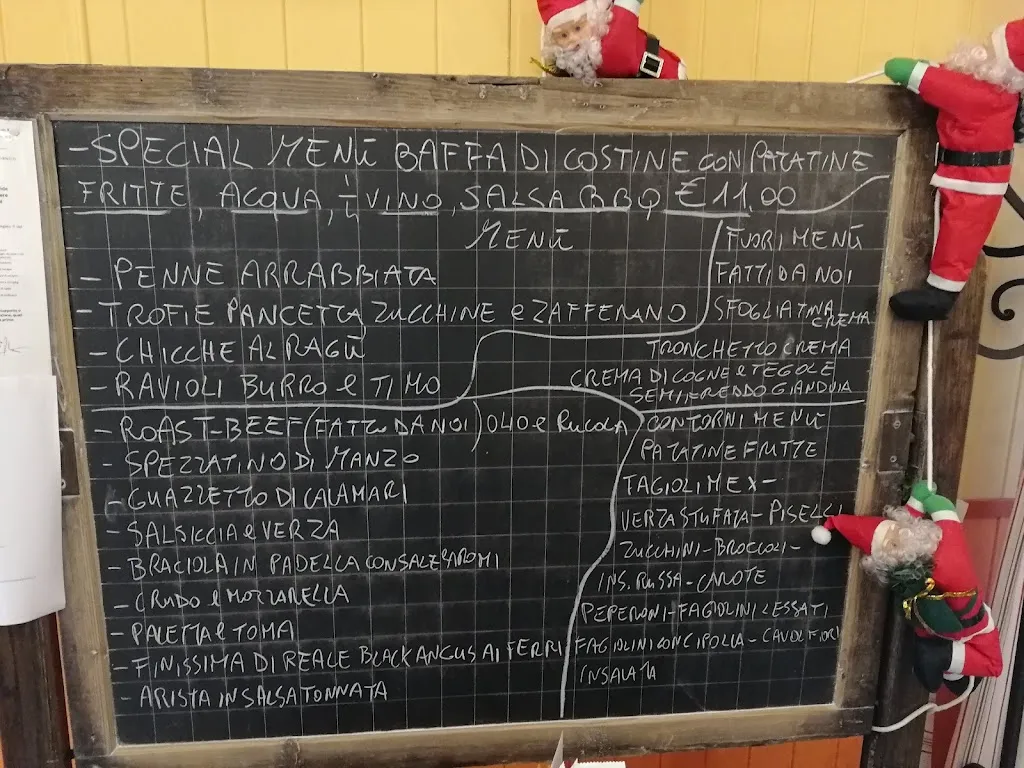 -SPECIAL MENÙ BAFFA DI COSTINE CON PATATINE
FRITTE, ACQUA, ½ VINO, SALSA BBQ €11,00
MENÙ
- PENNE ARRABBIATA
- TROFIE PANCETTA, ZUCCHINE e ZAFFERANO
- CHICCHE AL RAGÙ
- RAVIOLI BURRO e TIMO
FUORI MENÙ
FATTI DA NOI
SFOGLIATINA CREMA
TRONCHETTO CREMA
CREMA DI COGNE e TEGOLE
SEMIFREDDO GIANDUIA
- ROAST-BEEF (FATTO DA NOI) OLIO e RUCOLA
- SPEZZATINO DI MANZO
- GUAZZETTO DI CALAMARI
- SALSICCIA e VERZA
- BRACIOLA IN PADELLA CON SALE AROMI
- CRUDO e MOZZARELLA
- PALETTA e TOMA
- FINISSIMA DI REALE BLACK ANGUS AI FERRI
- ARISTA IN SALSA TONNATA
CONTORNI MENÙ
PATATINE FRITTE
FAGIOLI MEX-
VERZA STUFATA - PISELLI
ZUCCHINI - BROCCOLI -
INS. RUSSA - CAROTE
PEPERONI - FAGIOLINI LESSATI
FAGIOLINI CON CIPOLLA - CAVOLFIORI
INSALATA